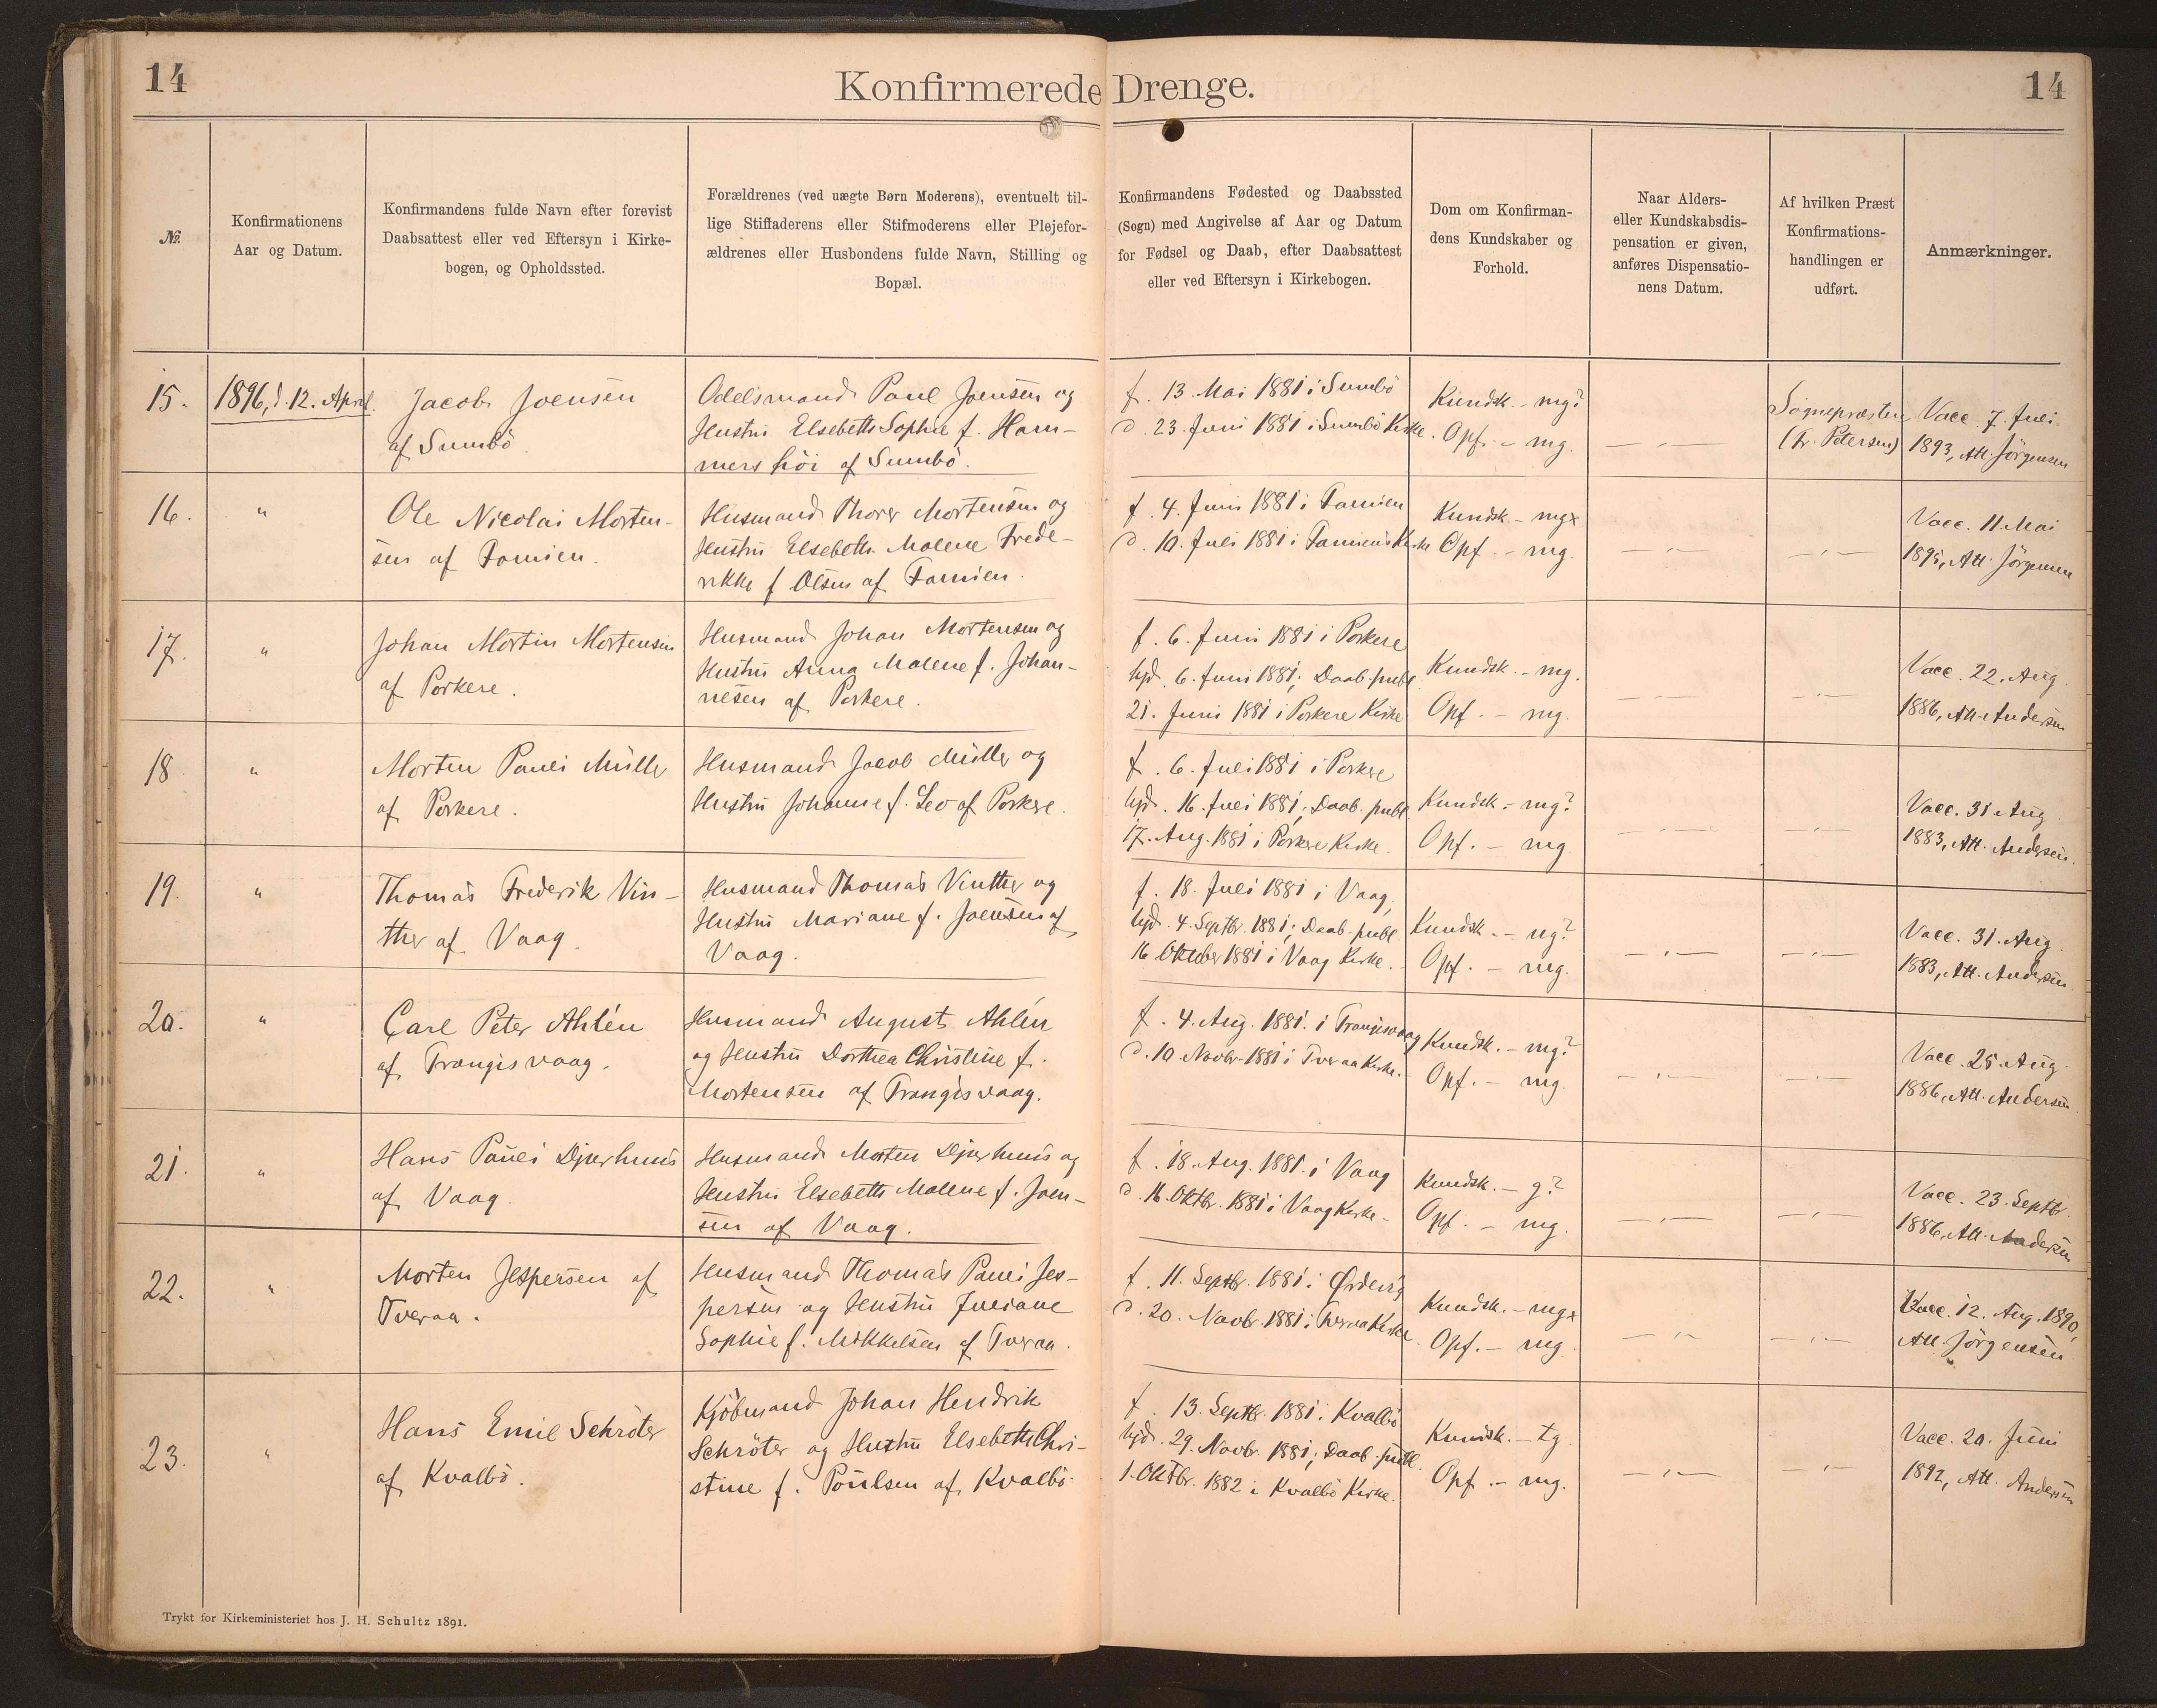 14
Konfirmerede Drenge.
14
№.
Konfirmationens
Aar og Datum.
Konfirmandens fulde Navn efter forevist
Daabsattest eller ved Eftersyn i Kirke-
bogen, og Opholdssted.
Forældrenes (ved uægte Børn Moderens), eventuelt til-
lige Stiffaderens eller Stifmoderens eller Plejefor-
ældrenes eller Husbondens fulde Navn, Stilling og
Bopæl.
Konfirmandens Fødested og Daabssted
(Sogn) med Angivelse af Aar og Datum
for Fødsel og Daab, efter Daabsattest
eller ved Eftersyn i Kirkebogen.
Dom om Konfirman-
dens Kundskaber og
Forhold.
Naar Alders-
eller Kundskabsdis-
pensation er given,
anføres Dispensatio-
nens Datum.
Af hvilken Præst
Konfirmations-
handlingen er
udført.
Anmærkninger.
15.
1896, d. 12. April.
Jacob Joensen
af Sumbö
Odelsmand Poul Joensen og
Hustru Elsebeth Sophie f. Ham-
mershöi af Sumbö.
f. 13. Mai 1881 i Sumbö
d. 23. Juni 1881 i Sumbö Kirke.
Kundsk. - mg?
Opf. - mg.
— , —
Sognepræsten
(Fr. Petersen)
Vacc. 7. Juli
1893, Att. Jörgensen
16.
"
Ole Nicolai Morten-
sen af Famien.
Husmand Thorer Mortensen og
Hustru Elsebeth Malene Frede-
rikke f. Olsen af Famien.
f. 4. Juni 1881 i Famien
d. 10. Juli 1881 i Famiens Kirke
Kundsk. - mgx
Opf. - mg.
— , —
— , —
Vacc. 11. Mai
1895, Att. Jörgensen
17.
"
Johan Mortin Mortensen
af Porkere.
Husmand Johan Mortensen og
Hustru Anna Malene f. Johan-
nesen af Porkere.
f. 6. Juni 1881 i Porkere
hjd. 6. Juni 1881; Daab. publ.
21. Juni 1881 i Porkere Kirke
Kundsk. - mg.
Opf. - mg.
— , —
— , —
Vacc. 22. Aug
1886, Att. Andersen
18
"
Morten Pauli Müller
af Porkere.
Husmand Jacob Müller og
Hustru Johanne f. Leo af Porkere.
f. 6. Juli 1881 i Porkere
hjd. 16. Juli 1881; Daab. publ.
17. Aug. 1881 i Porkere Kirke.
Kundsk. - mg?
Opf. - mg
— , —
— , —
Vacc. 31 Aug
1883, Att. Andersen.
19.
"
Thomas Frederik Vin-
ther af Vaag.
Husmand Thomas Vinther og
Hustru Mariane f. Joensen af
Vaag.
f. 18. Juli 1881 i Vaag,
hjd. 4. Septbr. 1881; Daab. publ.
16 Oktober 1881 i Vaag Kirke.
Kundsk. - ug?
Opf. - mg.
— , —
— , —
Vacc. 31. Aug.
1883, Att. Andersen
20.
"
Carl Peter Ahlén
af Trangisvaag.
Husmand August Ahlén
og Hustru Dorthea Christine f.
Mortensen af Trangisvaag.
f. 4. Aug. 1881. i Trangisvaag
d. 10. Novbr. 1881 i Tveraa Kirke.
Kundsk. - mg?
Opf. - mg.
— , —
— , —
Vacc. 25. Aug.
1886, Att. Andersen
21.
"
Hans Pauli Djurhuus
af Vaag
Husmand Morten Djurhuus og
Hustru Elsebeth Malene f. Joen-
sen af Vaag.
f. 18. Aug. 1881. i Vaag
d. 16. Oktbr. 1881 i Vaag Kirke.
Kundsk. - g?
Opf. - mg.
— , —
— , —
Vacc. 23. Septbr.
1886, Att. Andersen
22.
"
Morten Jespersen af
Tveraa.
Husmand Thomas Pauli Jes-
persen og Hustru Juliane
Sophie f. Mikkelsen af Tveraa.
f. 11. Septbr. 1881 i Ördevig
d. 20. Novbr. 1881 i Tveraa Kirke
Kundsk. - mgx
Opf. - mg
— , —
— , —
Vacc. 12. Aug. 1890,
Att. Jörgensen
23.
"
Hans Emil Schröter
af Kvalbö.
Kjöbmand Johan Hendrik
Schröter og Hustru Elsebeth Chri-
stine f. Poulsen af Kvalbö.
f. 13. Septbr. 1881 i Kvalbö
hjd. 29. Novbr. 1881; Daab. publ.
1. Oktbr. 1882 i Kvalbö Kirke.
Kundsk. - tg
Opf. - mg.
— , —
— , —
Vacc. 20. Juni
1892, Att. Andersen
Trykt for Kirkeministeriet hos J. H. Schultz 1891.